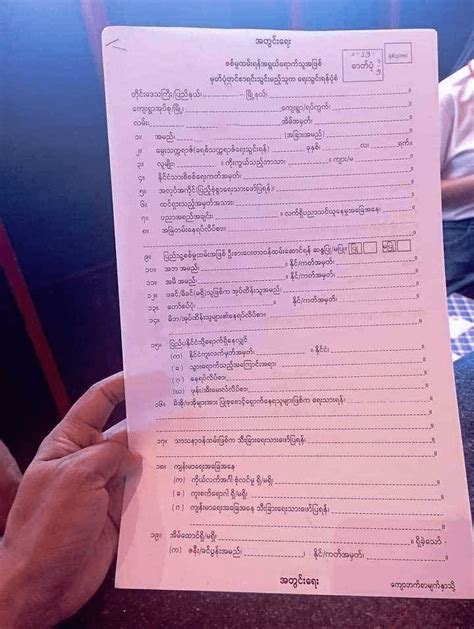 အတွင်းရေး
စစ်မှုထမ်းရန်အရွယ်ရောက်သူအဖြစ်
မှတ်ပုံတင်စာရင်းသွင်းမည့်သူက ရေးသွင်းရန်ပုံစံ
ဓာတ်ပုံ
တိုင်းဒေသကြီး/ပြည်နယ်၊ မြို့နယ်၊
ကျေးရွာအုပ်စု/မြို့၊ ကျေးရွာ/ရပ်ကွက်၊
လမ်း၊ အိမ်အမှတ်၊
၁။ အမည်၊ (အခြားအမည်)
၂။ မွေးသက္ကရာဇ်(ခရစ်သက္ကရာဇ်ရေးသွင်းရန်) ခုနှစ်၊ လ၊ ရက်။
၃။ လူမျိုး၊ ။ ကိုးကွယ်သည့်ဘာသာ၊ ။ ကျား/မ ။
၄။ နိုင်ငံသားစိစစ်ရေးကတ်အမှတ်၊ ။
၅။ အလုပ်အကိုင်(ပြည့်စုံစွာရေးသားဖော်ပြရန်)၊ ။
၆။ ထင်ရှားသည့်အမှတ်အသား၊ ။
၇။ ပညာအရည်အချင်း၊ ။ လက်ရှိပညာသင်ယူနေမှုအခြေအနေ၊ ။
၈။ အမြဲတမ်းနေရပ်လိပ်စာ၊
၉။ ပြည်သူ့စစ်မှုထမ်းအဖြစ် ဦးစားပေးတာဝန်ထမ်းဆောင်ရန် ဆန္ဒပြု/မပြု။ ပြု မပြု
၁၀။ အဘ အမည်၊ ။ နိုင်/ကတ်အမှတ်၊ ။
၁၁။ အမိ အမည်၊ ။ နိုင်/ကတ်အမှတ်၊ ။
၁၂။ ဖခင်/မိခင်(မရှိ)သူဖြစ်က အုပ်ထိန်းသူအမည်၊ ။
၁၃။ တော်စပ်ပုံ၊ ။ နိုင်/ကတ်အမှတ်၊ ။
၁၄။ မိဘ/အုပ်ထိန်းသူများ၏နေရပ်လိပ်စာ၊
၁၅။ ပြည်ပနိုင်ငံသို့ရောက်ရှိနေလျှင်
(က) နိုင်ငံကူးလက်မှတ်အမှတ်၊ ။ နိုင်ငံ၊ ။
(ခ) သွားရောက်သည့်အကြောင်းအရာ၊ ။
(ဂ) နေရပ်လိပ်စာ၊ ။
(ဃ) ဖုန်း/အီးမေးလ်လိပ်စာ၊ ။
၁၆။ မိအို/ဖအိုများအား ပြုစုစောင့်ရှောက်နေရသူများဖြစ်က ရေးသားရန်၊
၁၇။ သာသနာ့ဝန်ထမ်းဖြစ်က သီးခြားရေးသားဖော်ပြရန်၊
၁၈။ ကျန်းမာရေးအခြေအနေ
(က) ကိုယ်လက်အင်္ဂါ စုံလင်မှု ရှိ/မရှိ၊ ။
(ခ) ကူးစက်ရောဂါ ရှိ/မရှိ၊ ။
(ဂ) ကျန်းမာရေးအခြေအနေ သီးခြားရေးသားဖော်ပြရန်၊
၁၉။ အိမ်ထောင်ရှိ/မရှိ၊ ။ ရှိခဲ့သော် -
(က) ဇနီး/ခင်ပွန်းအမည်၊ ( ) နိုင်/ကတ်အမှတ်၊ ။
အတွင်းရေး
ကျောဘက်စာမျက်နှာသို့